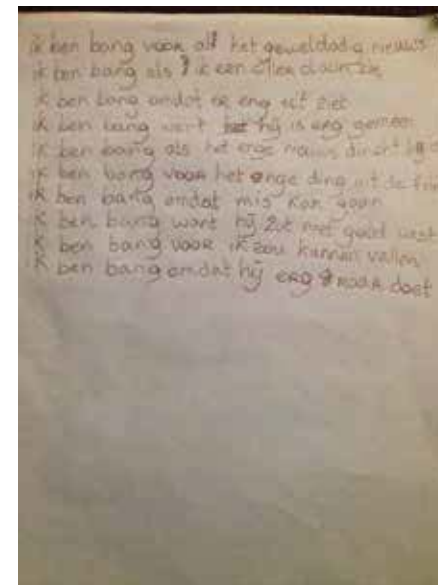 ik ben bang voor all het geweldadig nieuws
ik ben bang als ik een clown zie
ik ben bang omdat er eng uit ziet
ik ben bang want hij is erg gemeen
ik ben bang als het enge nieuws dicht bij
ik ben bang voor het enge ding uit de
ik ben bang omdat mis kan gaan
ik ben bang want hij zit niet goed vast
ik ben bang voor ik zou kunnen vallen
ik ben bang omdat hij erg raar doet